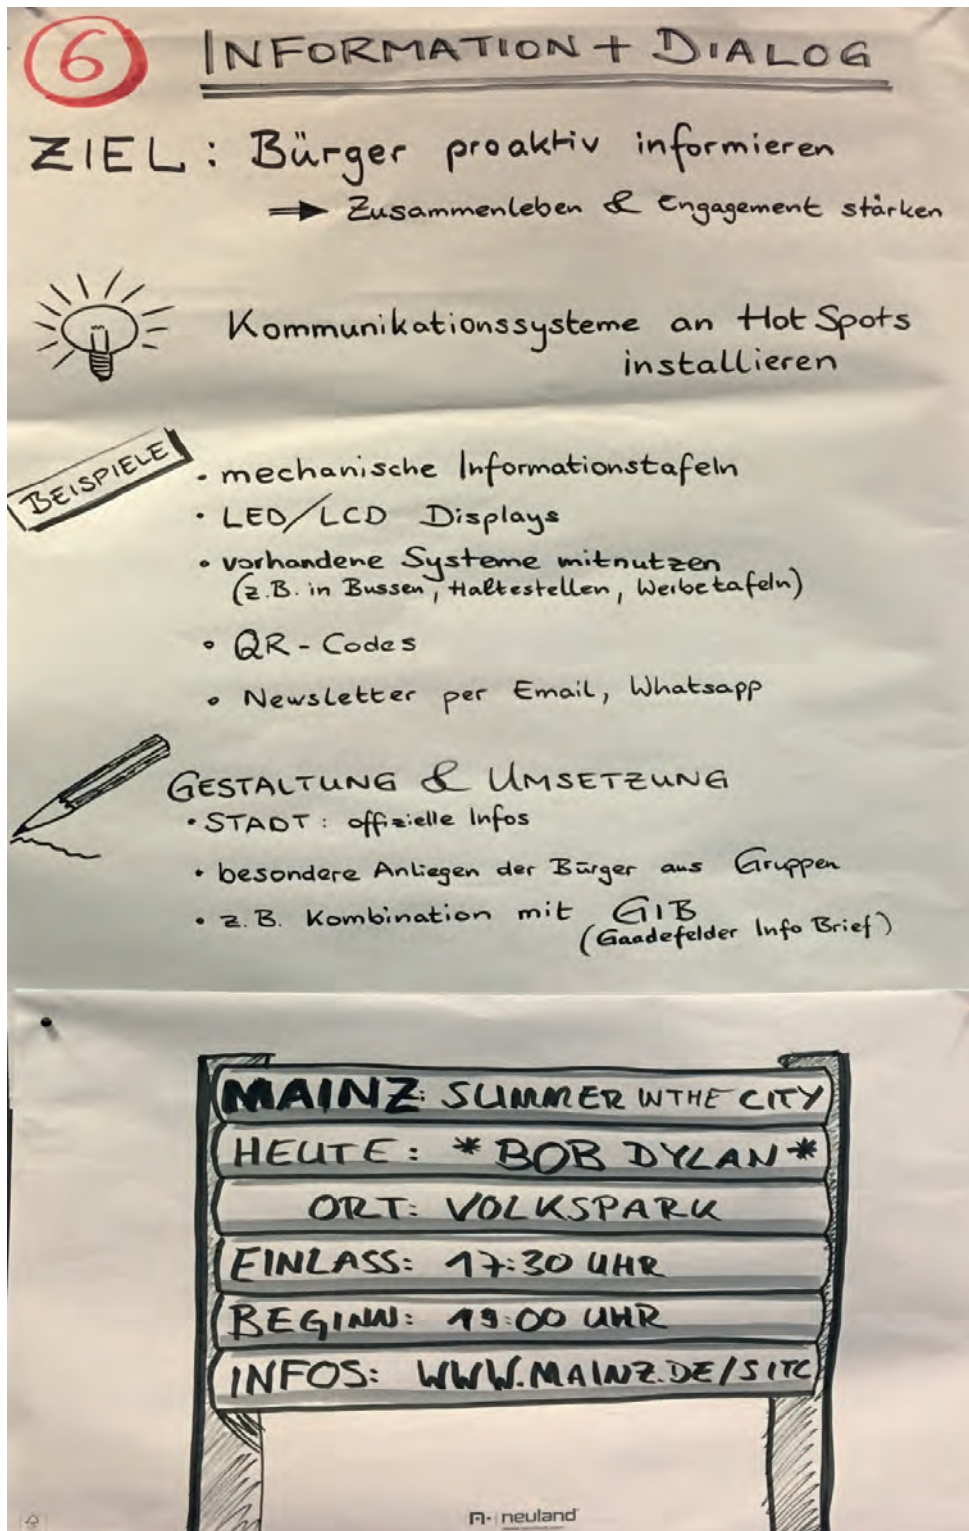 6 INFORMATION + DIALOG
ZIEL: Bürger proaktiv informieren
Zusammenleben & Engagement stärken
Kommunikationssysteme an Hot Spots
installieren
BEISPIELE
• mechanische Informationstafeln
• LED/LCD Displays
• vorhandene Systeme mitnutzen
(z.B. in Bussen, Haltestellen, Werbetafeln)
• QR-Codes
• Newsletter per Email, Whatsapp
GESTALTUNG & UMSETZUNG
• STADT: offizielle Infos
• besondere Anliegen der Bürger aus Gruppen
• z.B. Kombination mit GIB
(Gaadefelder Info Brief)
MAINZ: SUMMER IN THE CITY
HEUTE: *BOB DYLAN*
ORT: VOLKSPARK
EINLASS: 17:30 UHR
BEGINN: 19:00 UHR
INFOS: WWW.MAINZ.DE/SITC
neuland